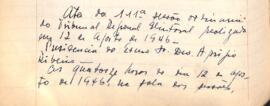 Ata da 111ª sessão ordinaria
do Tribunal Regional Eleitoral realizada
em 12 de Agosto de 1946 -
Presidencia do Exmo Sr. Des. Aripio
Ribeiro -
As quatorze horas do dia 12 de agos-
to de 1946, na sala das sessões,